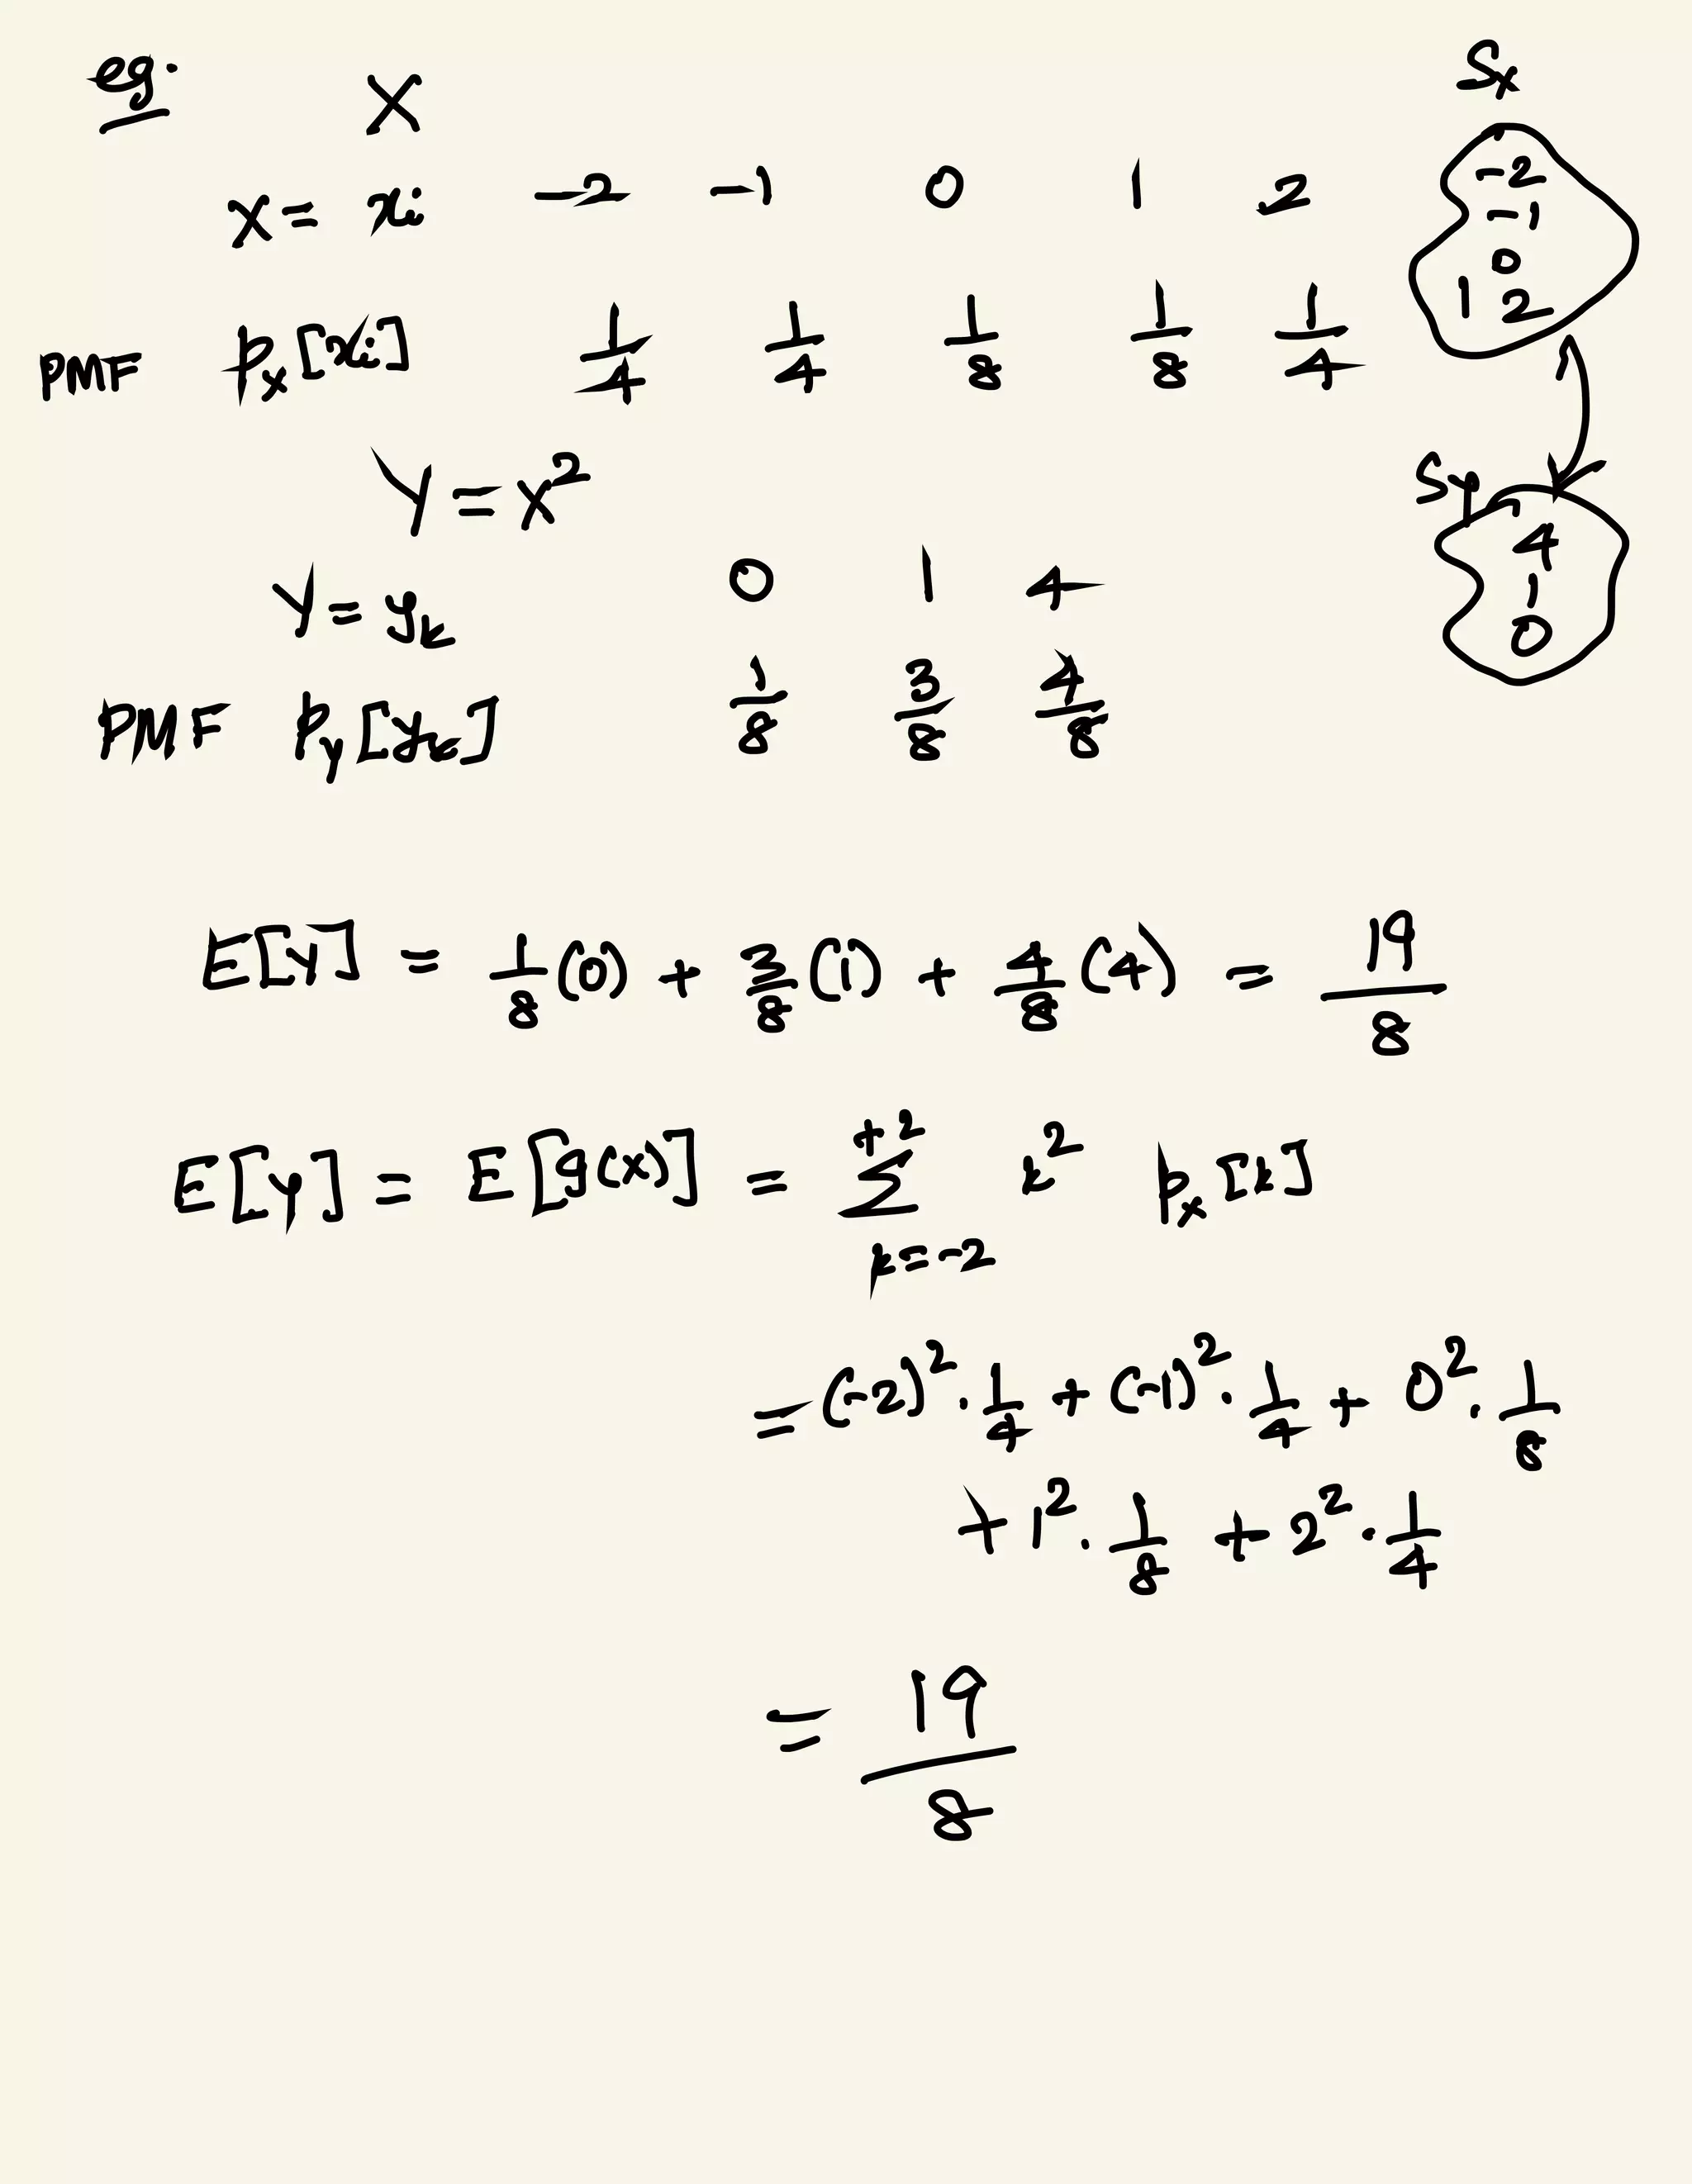 eg. X
X = xi -2 -1 0 1 2
PMF Px[xi] 1/4 1/4 1/8 1/8 1/4
Sx
-2
-1
0
1 2
Y = X²
Y = yk 0 1 4
PMF Py[yk] 1/8 3/8 4/8
Sy
4
1
0
E[Y] = 1/8 (0) + 3/8 (1) + 4/8 (4) = 19/8
E[Y] = E[g(X)] = Σ_{k=-2}^{+2} k² Px[k]
= (-2)² · 1/4 + (-1)² · 1/4 + 0² · 1/8
+ 1² · 1/8 + 2² · 1/4
= 19/8